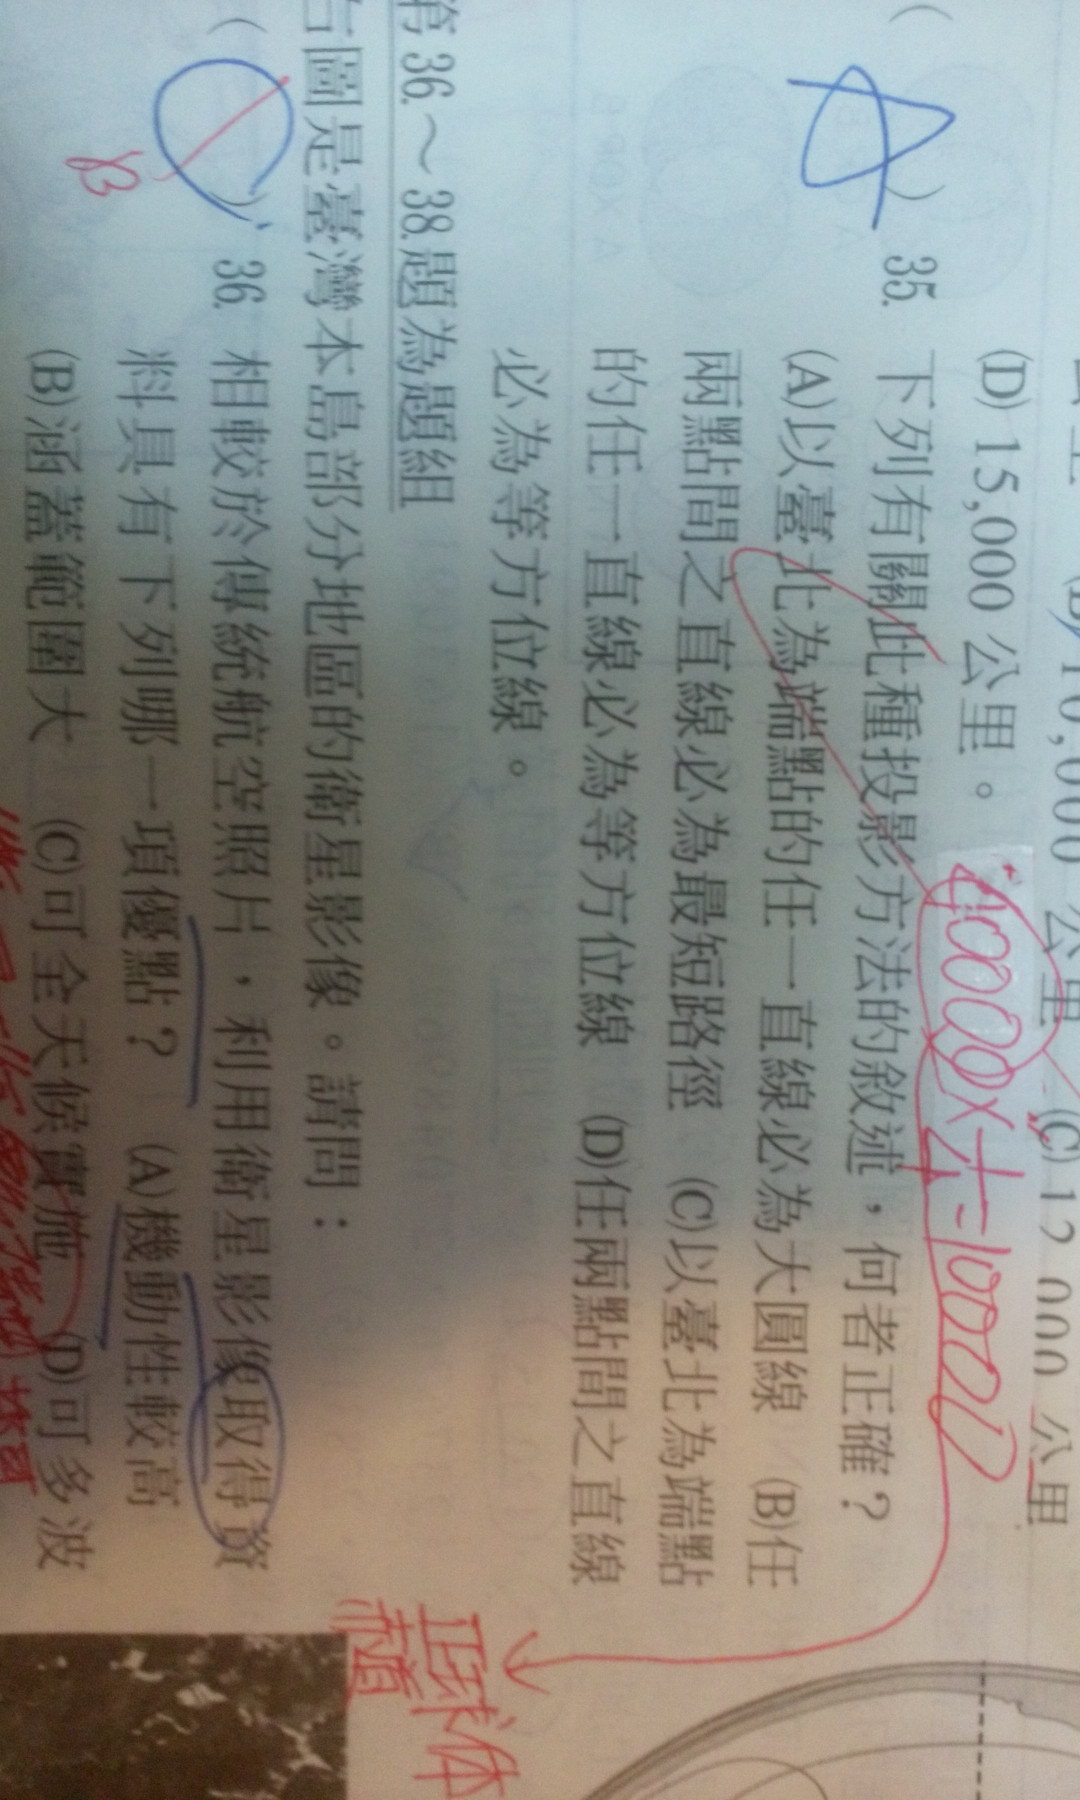 (B) 10,000 公里 (C) 12,000 公里
(D) 15,000 公里。
40000×¼=10000
( A ) 35. 下列有關此種投影方法的敘述，何者正確？
(A)以臺北為端點的任一直線必為大圓線 (B)任
兩點間之直線必為最短路徑 (C)以臺北為端點
的任一直線必為等方位線 (D)任兩點間之直線
必為等方位線。
正球体
第 36.～38.題為題組
右圖是臺灣本島部分地區的衛星影像。請問：
( ) 36. 相較於傳統航空照片，利用衛星影像取得資
B
料具有下列哪一項優點？ (A)機動性較高
(B)涵蓋範圍大 (C)可全天候實施 (D)可多波